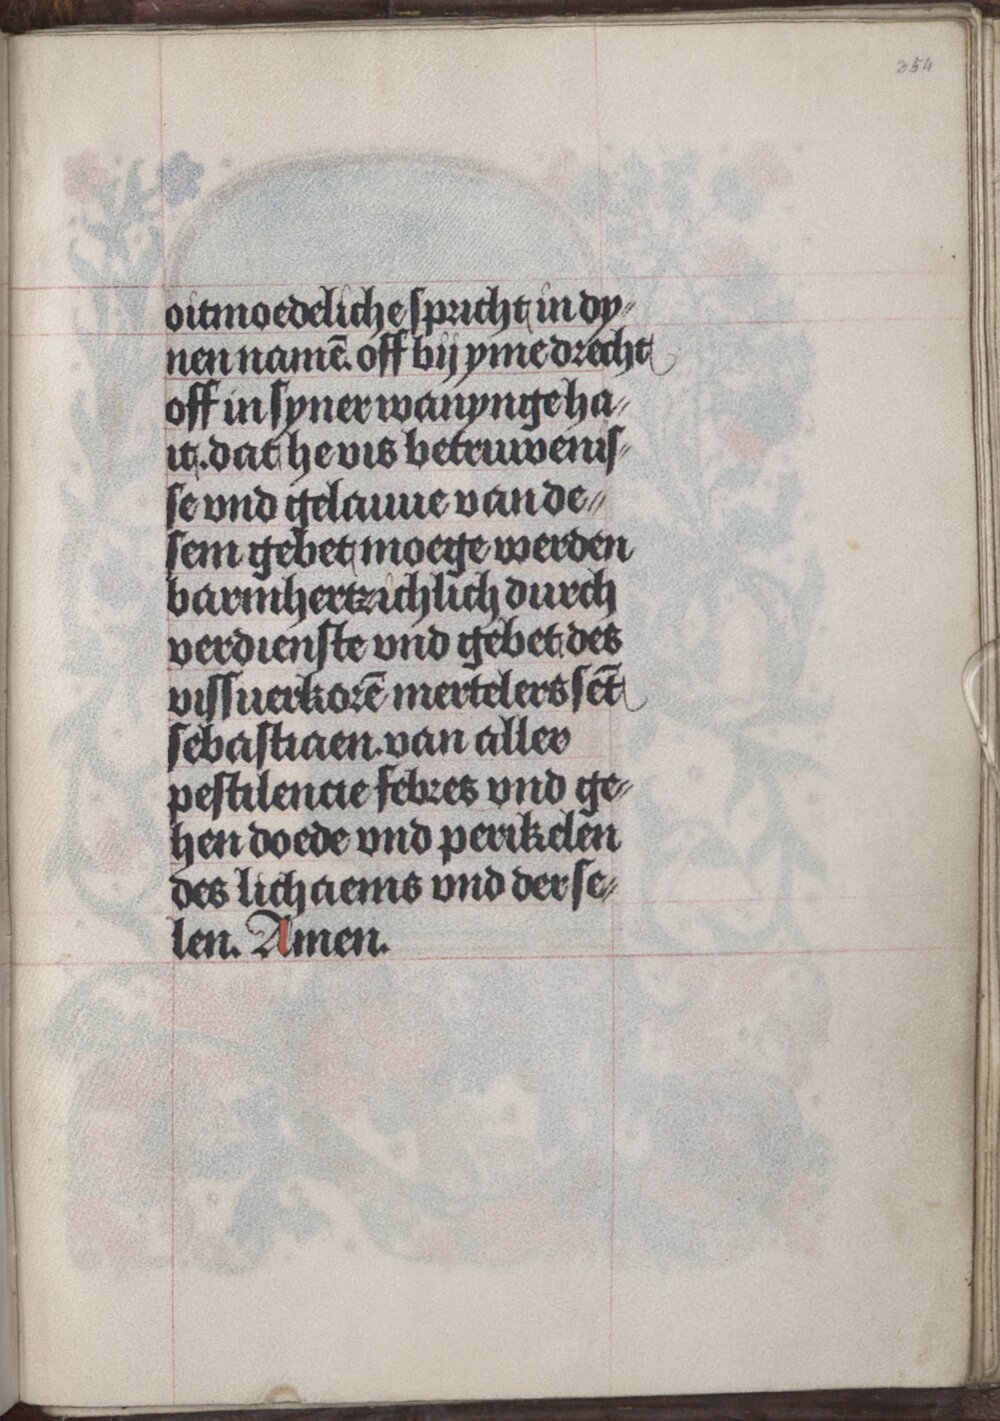 254
oitmoedeliche spricht in dy⸗
nen namē. off bij yme drecht
off in syner wanynge ha⸗
it. dat he vis betruwenis⸗
se vnd gelauue van de⸗
sem gebet moege werden
barmhertzichlich durch
verdienste vnd gebet des
vissuerkorē mertelers sēt
sebastiaen. van aller
pestilencie febres vnd ge⸗
hen doede vnd perikelen
des lichaems vnd der se⸗
len. Amen.